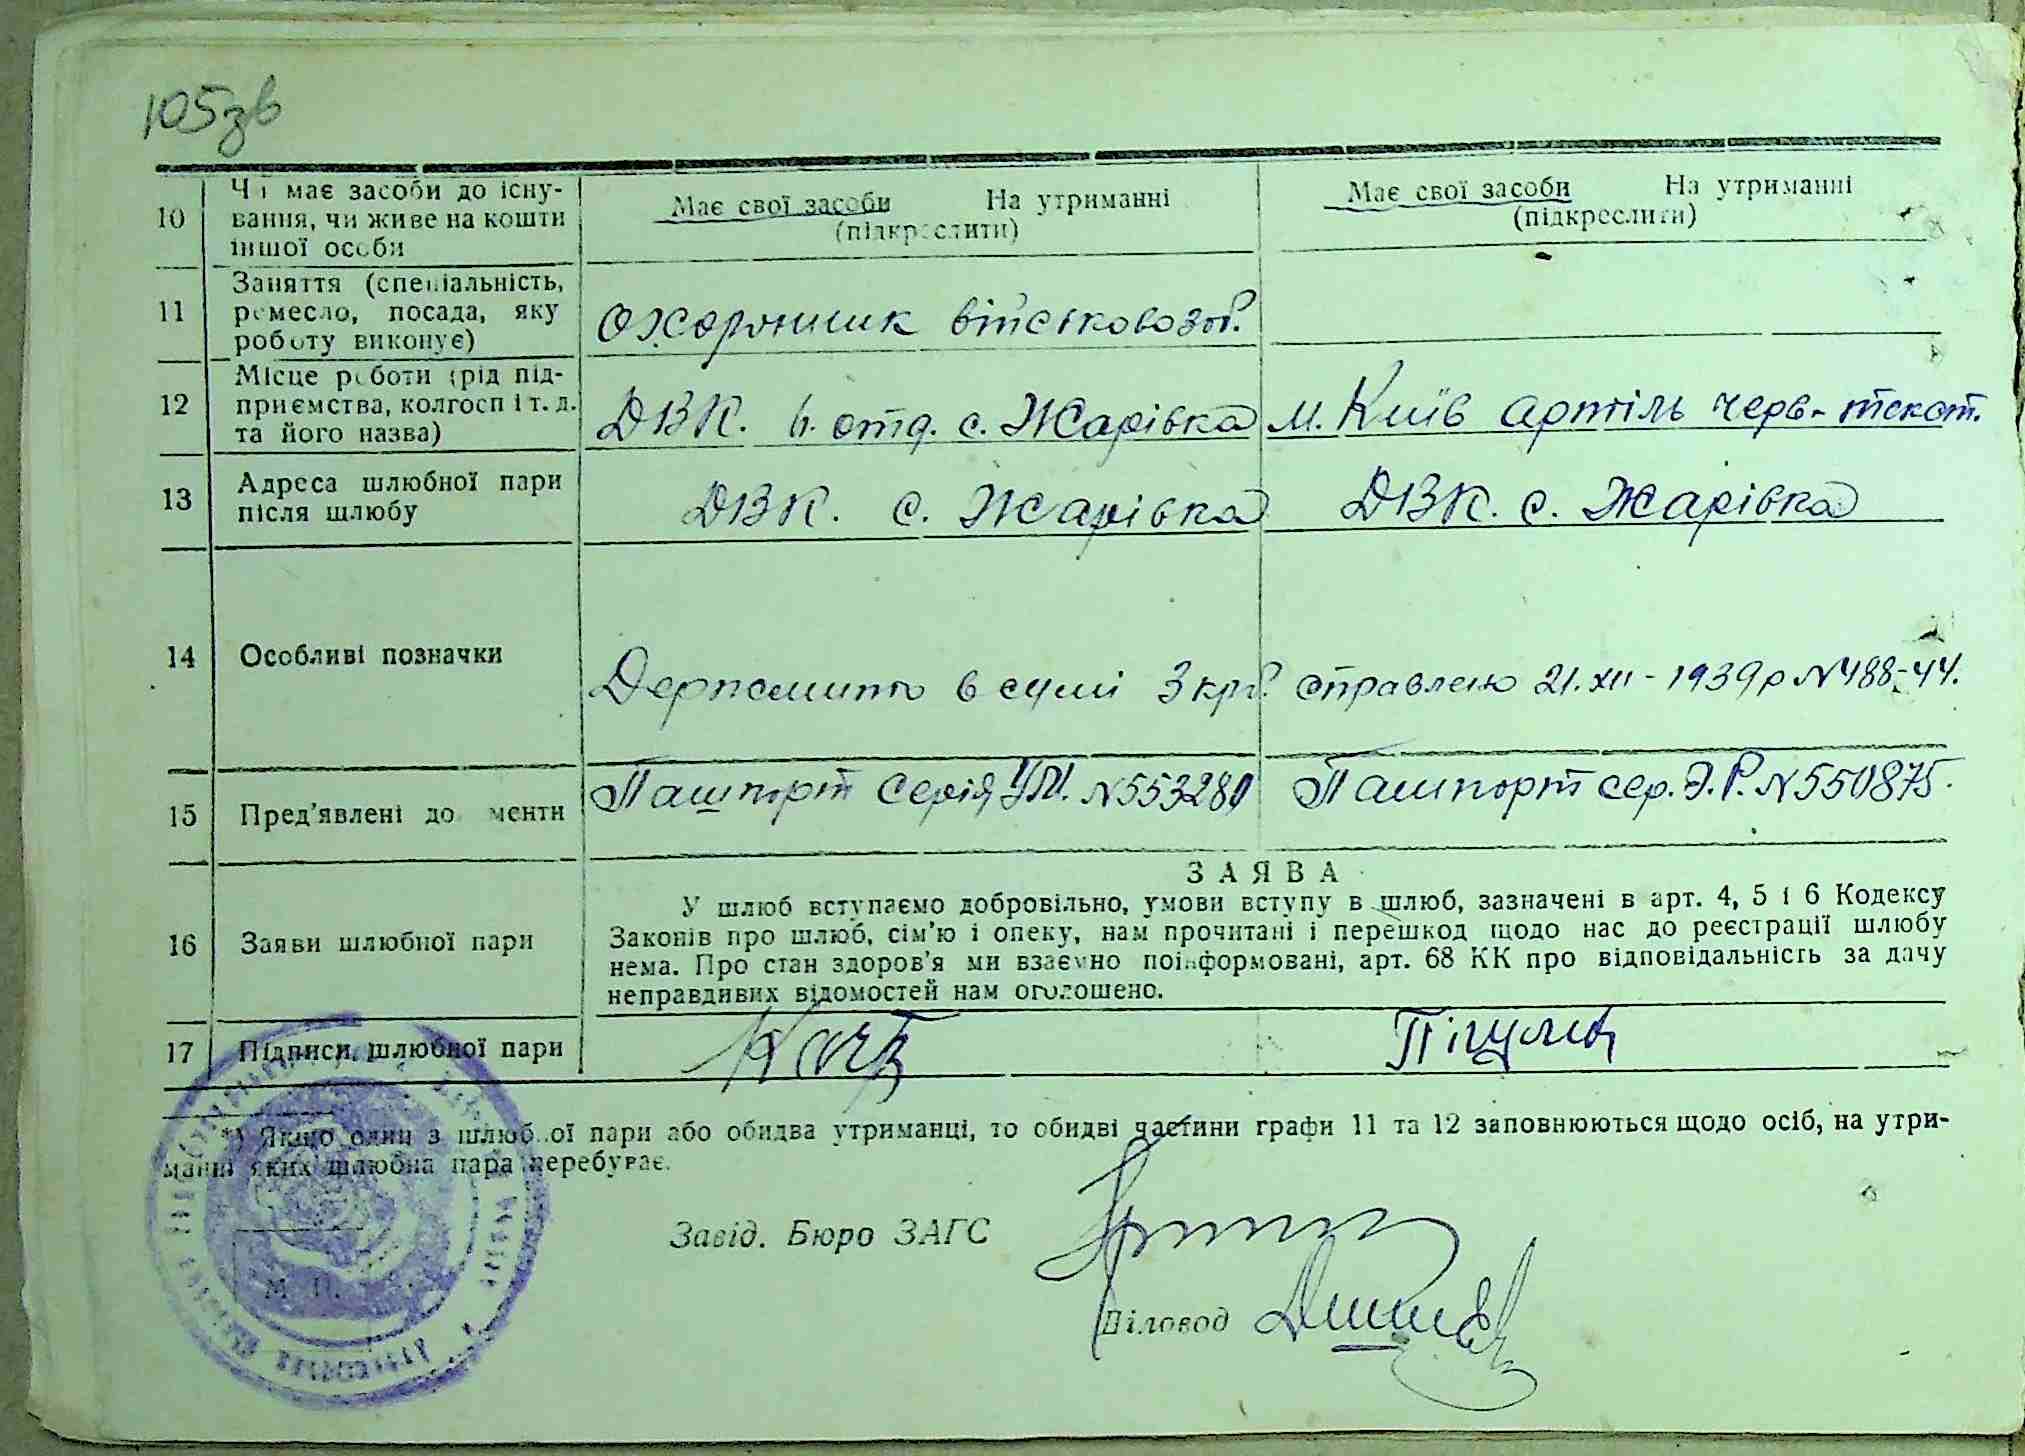 105зв
10 Чи має засоби до існу-
вання, чи живе на кошти
іншої особи
Має свої засоби На утриманні
(підкреслити)
Має свої засоби На утриманні
(підкреслити)
11 Заняття (спеціальність,
ремесло, посада, яку
роботу виконує)
охоронник військовозоб.
12 Місце роботи (рід під-
приємства, колгосп і т. д.
та його назва)
ДВК. отд. с. Жарівка
м. Київ артіль черв-текст.
13 Адреса шлюбної пари
після шлюбу
ДВК. с. Жарівка
ДВК. с. Жарівка
14 Особливі позначки
Держмито в сумі 3 крб. справлено 21.XII-1939р N488-44.
15 Пред'явлені до менти
Пашпорт серія УМ. N553280
Пашпорт сер. Э.Р. N550875.
16 Заяви шлюбної пари
ЗАЯВА
У шлюб вступаємо добровільно, умови вступу в шлюб, зазначені в арт. 4, 5 і 6 Кодексу
Законів про шлюб, сім'ю і опеку, нам прочитані і перешкод щодо нас до реєстрації шлюбу
нема. Про стан здоров'я ми взаємно поінформовані, арт. 68 КК про відповідальність за дачу
неправдивих відомостей нам оголошено.
17 Підписи шлюбної пари
*) Якщо один з шлюбної пари або обидва утриманці, то обидві частини графи 11 та 12 заповнюються щодо осіб, на утри-
манні яких шлюбна пара перебуває.
Завід. Бюро ЗАГС
М. П.
Діловод